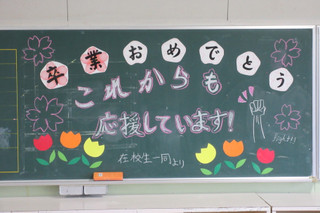 卒業おめでとう
これからも
応援しています!
在校生一同より